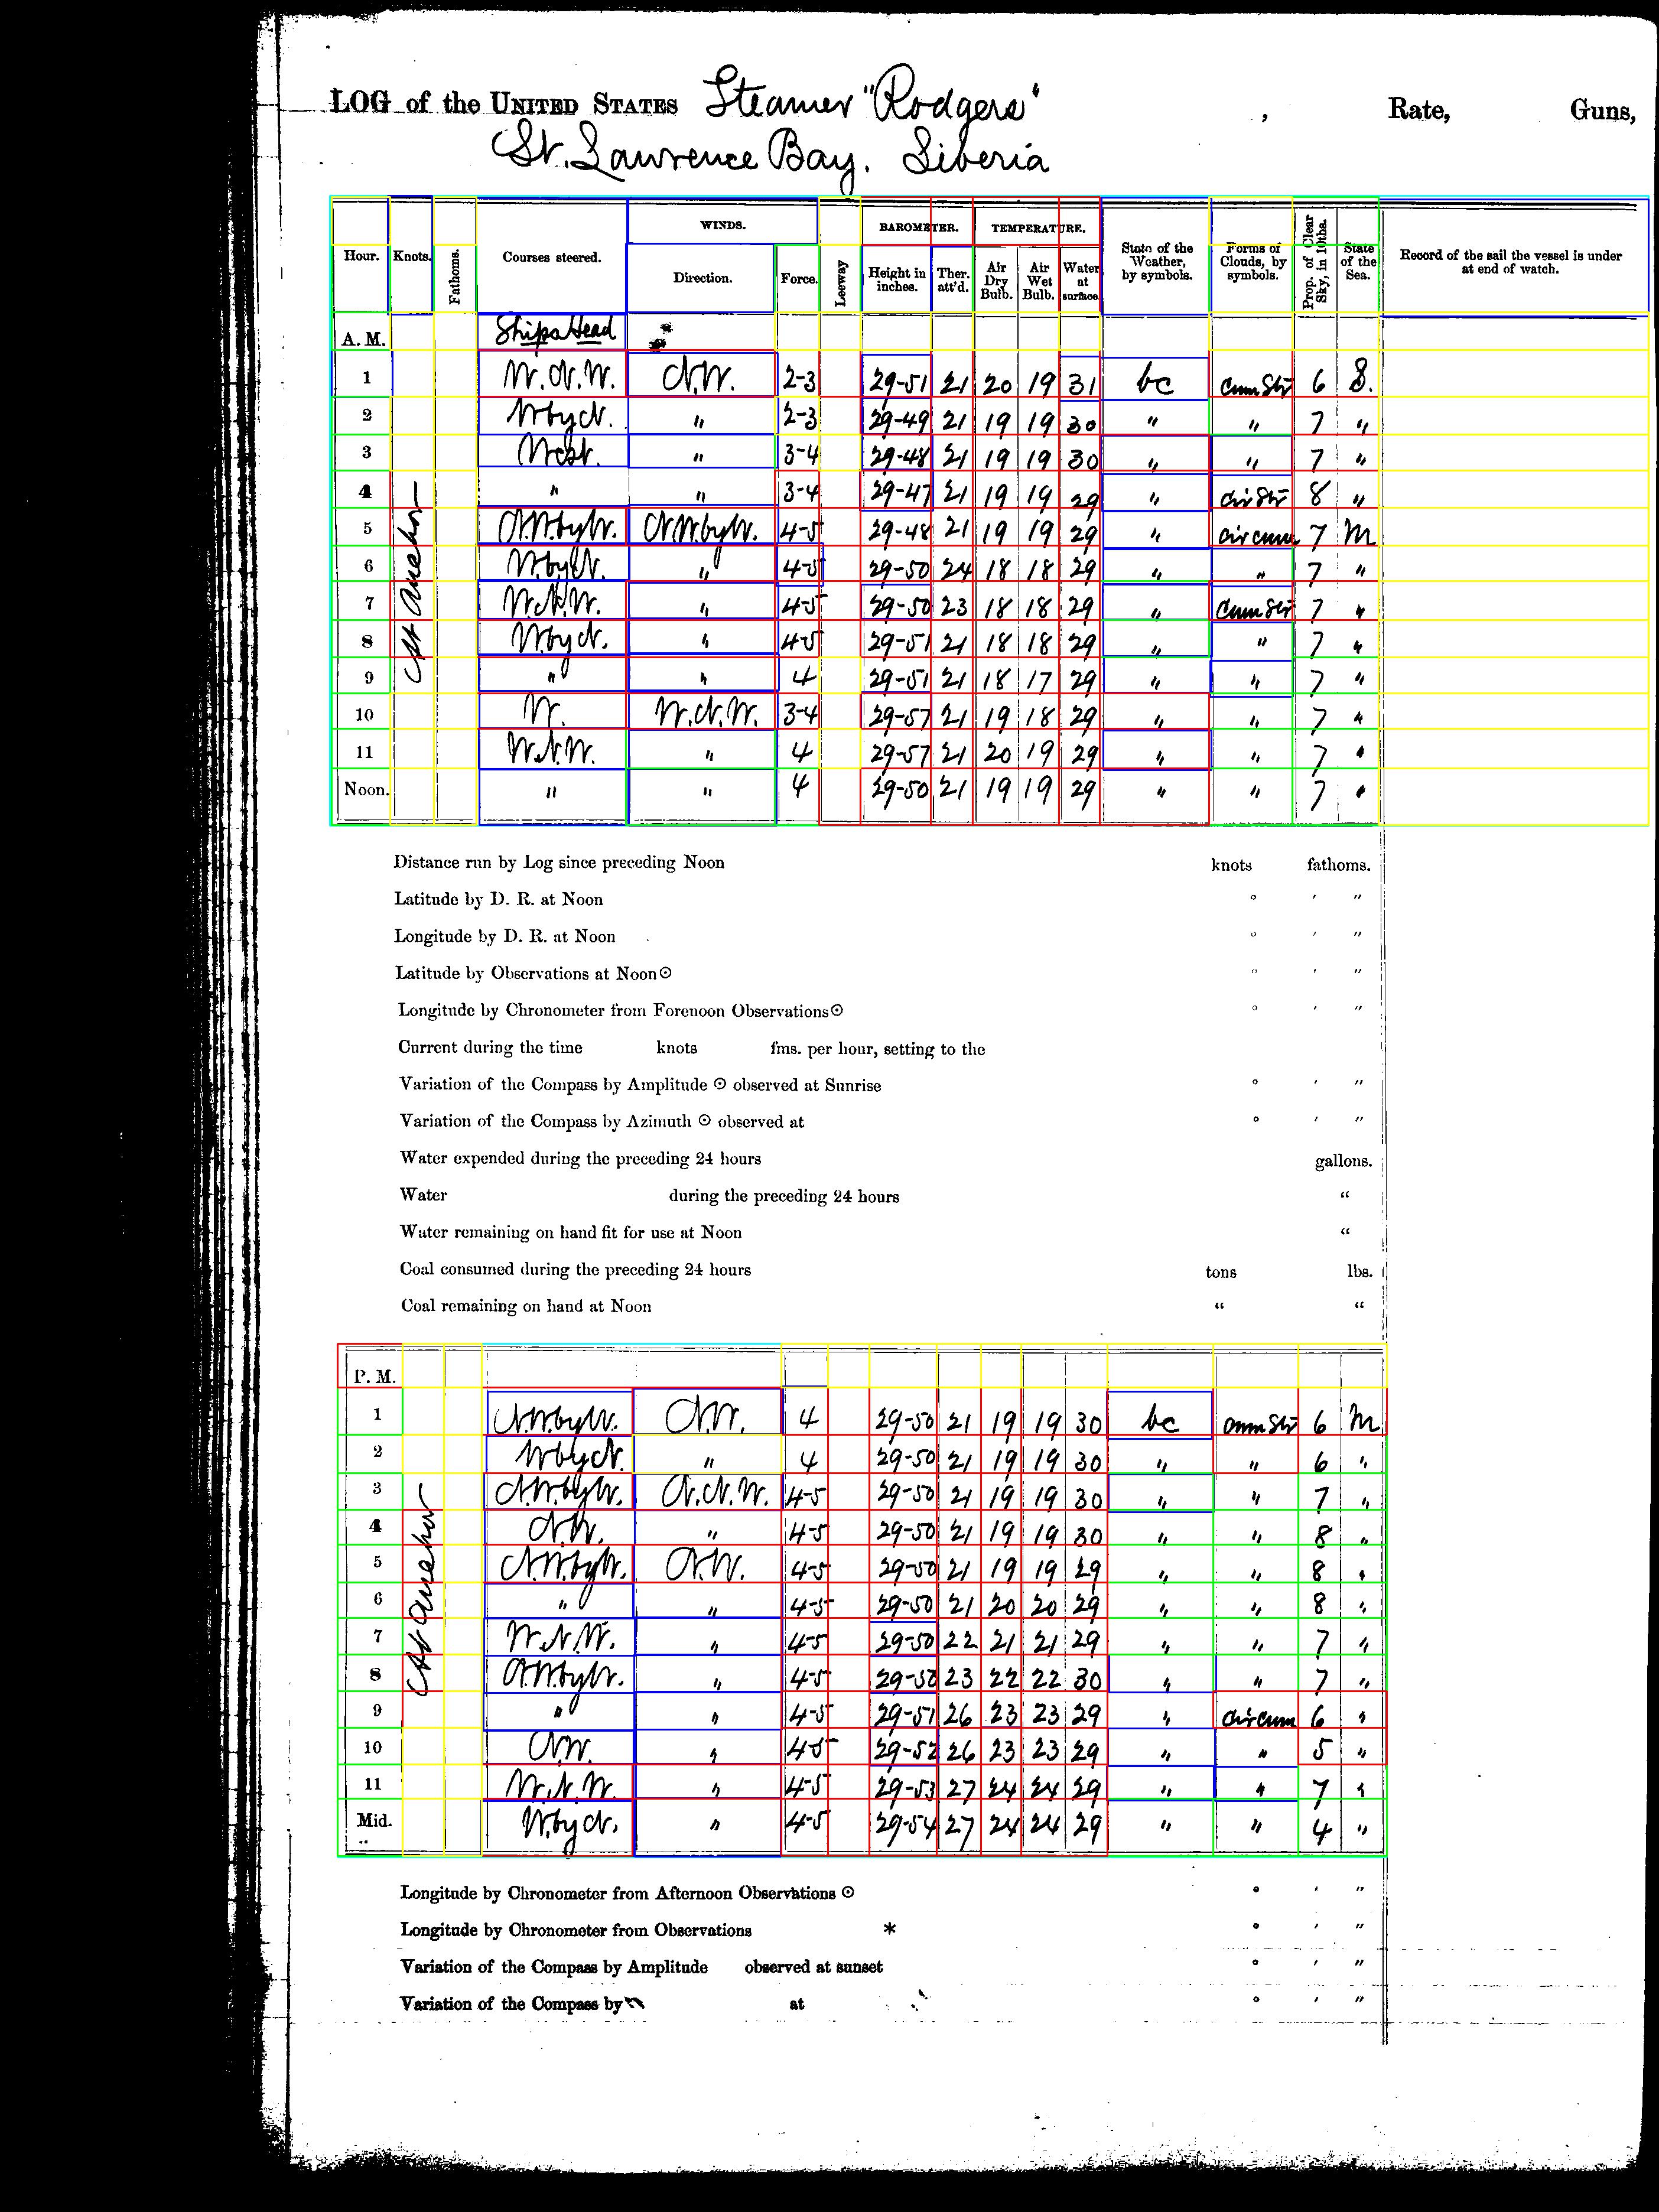 LOG of the UNITED STATES Steamer "Rodgers" , Rate, Guns,
St. Lawrence Bay. Siberia
Hour. Knots. Fathoms. Courses steered. WINDS. Direction. Force. Leeway BAROMETER. Height in inches. Ther. att'd. TEMPERATURE. Air Dry Bulb. Air Wet Bulb. Water at surface. State of the Weather, by symbols. Forms of Clouds, by symbols. Prop. of Clear Sky, in 10ths. State of the Sea. Record of the sail the vessel is under at end of watch.
A. M. Ships Head
At Anchor
1 W.N.W. N.W. 2-3 29-51 21 20 19 31 bc Cum Str 6 S.
2 W by N. " 2-3 29-49 21 19 19 30 " " 7 "
3 West. " 3-4 29-48 21 19 19 30 " " 7 "
4 " " 3-4 29-47 21 19 19 29 " Cir Str 8 "
5 N.W. by W. N.W. by W. 4-5 29-48 21 19 19 29 " Cir cum 7 M
6 W. by N. " 4-5 29-50 24 18 18 29 " " 7 "
7 W.N.W. " 4-5 29-50 23 18 18 29 " Cum Str 7 "
8 W by N. " 4-5 29-51 21 18 18 29 " " 7 "
9 " " 4 29-51 21 18 17 29 " " 7 "
10 W. W.N.W. 3-4 29-57 21 19 18 29 " " 7 "
11 W.N.W. " 4 29-57 21 20 19 29 " " 7 "
Noon. " " 4 29-50 21 19 19 29 " " 7 "
Distance run by Log since preceding Noon knots fathoms.
Latitude by D. R. at Noon ° ′ ″
Longitude by D. R. at Noon ° ′ ″
Latitude by Observations at Noon ⊙ ° ′ ″
Longitude by Chronometer from Forenoon Observations ⊙ ° ′ ″
Current during the time knots fms. per hour, setting to the
Variation of the Compass by Amplitude ⊙ observed at Sunrise ° ′ ″
Variation of the Compass by Azimuth ⊙ observed at ° ′ ″
Water expended during the preceding 24 hours gallons.
Water during the preceding 24 hours "
Water remaining on hand fit for use at Noon "
Coal consumed during the preceding 24 hours tons lbs.
Coal remaining on hand at Noon " "
P. M.
At Anchor
1 N.W. by W. N.W. 4 29-50 21 19 19 30 bc Cum Str 6 M
2 W by N. " 4 29-50 21 19 19 30 " " 6 "
3 N.W. by W. N.N.W. 4-5 29-50 21 19 19 30 " " 7 "
4 N.W. " 4-5 29-50 21 19 19 30 " " 8 "
5 N.W. by W. N.W. 4-5 29-50 21 19 19 29 " " 8 "
6 " " 4-5 29-50 21 20 20 29 " " 8 "
7 W.N.W. " 4-5 29-50 22 21 21 29 " " 7 "
8 N.W. by W. " 4-5 29-50 23 22 22 30 " " 7 "
9 " " 4-5 29-51 26 23 23 29 " Cir cum 6 "
10 N.W. " 4-5 29-52 26 23 23 29 " " 5 "
11 W.N.W. " 4-5 29-53 27 24 24 29 " " 7 "
Mid. W. by N. " 4-5 29-54 27 24 24 29 " " 4 "
Longitude by Chronometer from Afternoon Observations ⊙ ° ′ ″
Longitude by Chronometer from Observations * ° ′ ″
Variation of the Compass by Amplitude observed at sunset ° ′ ″
Variation of the Compass by at ° ′ ″